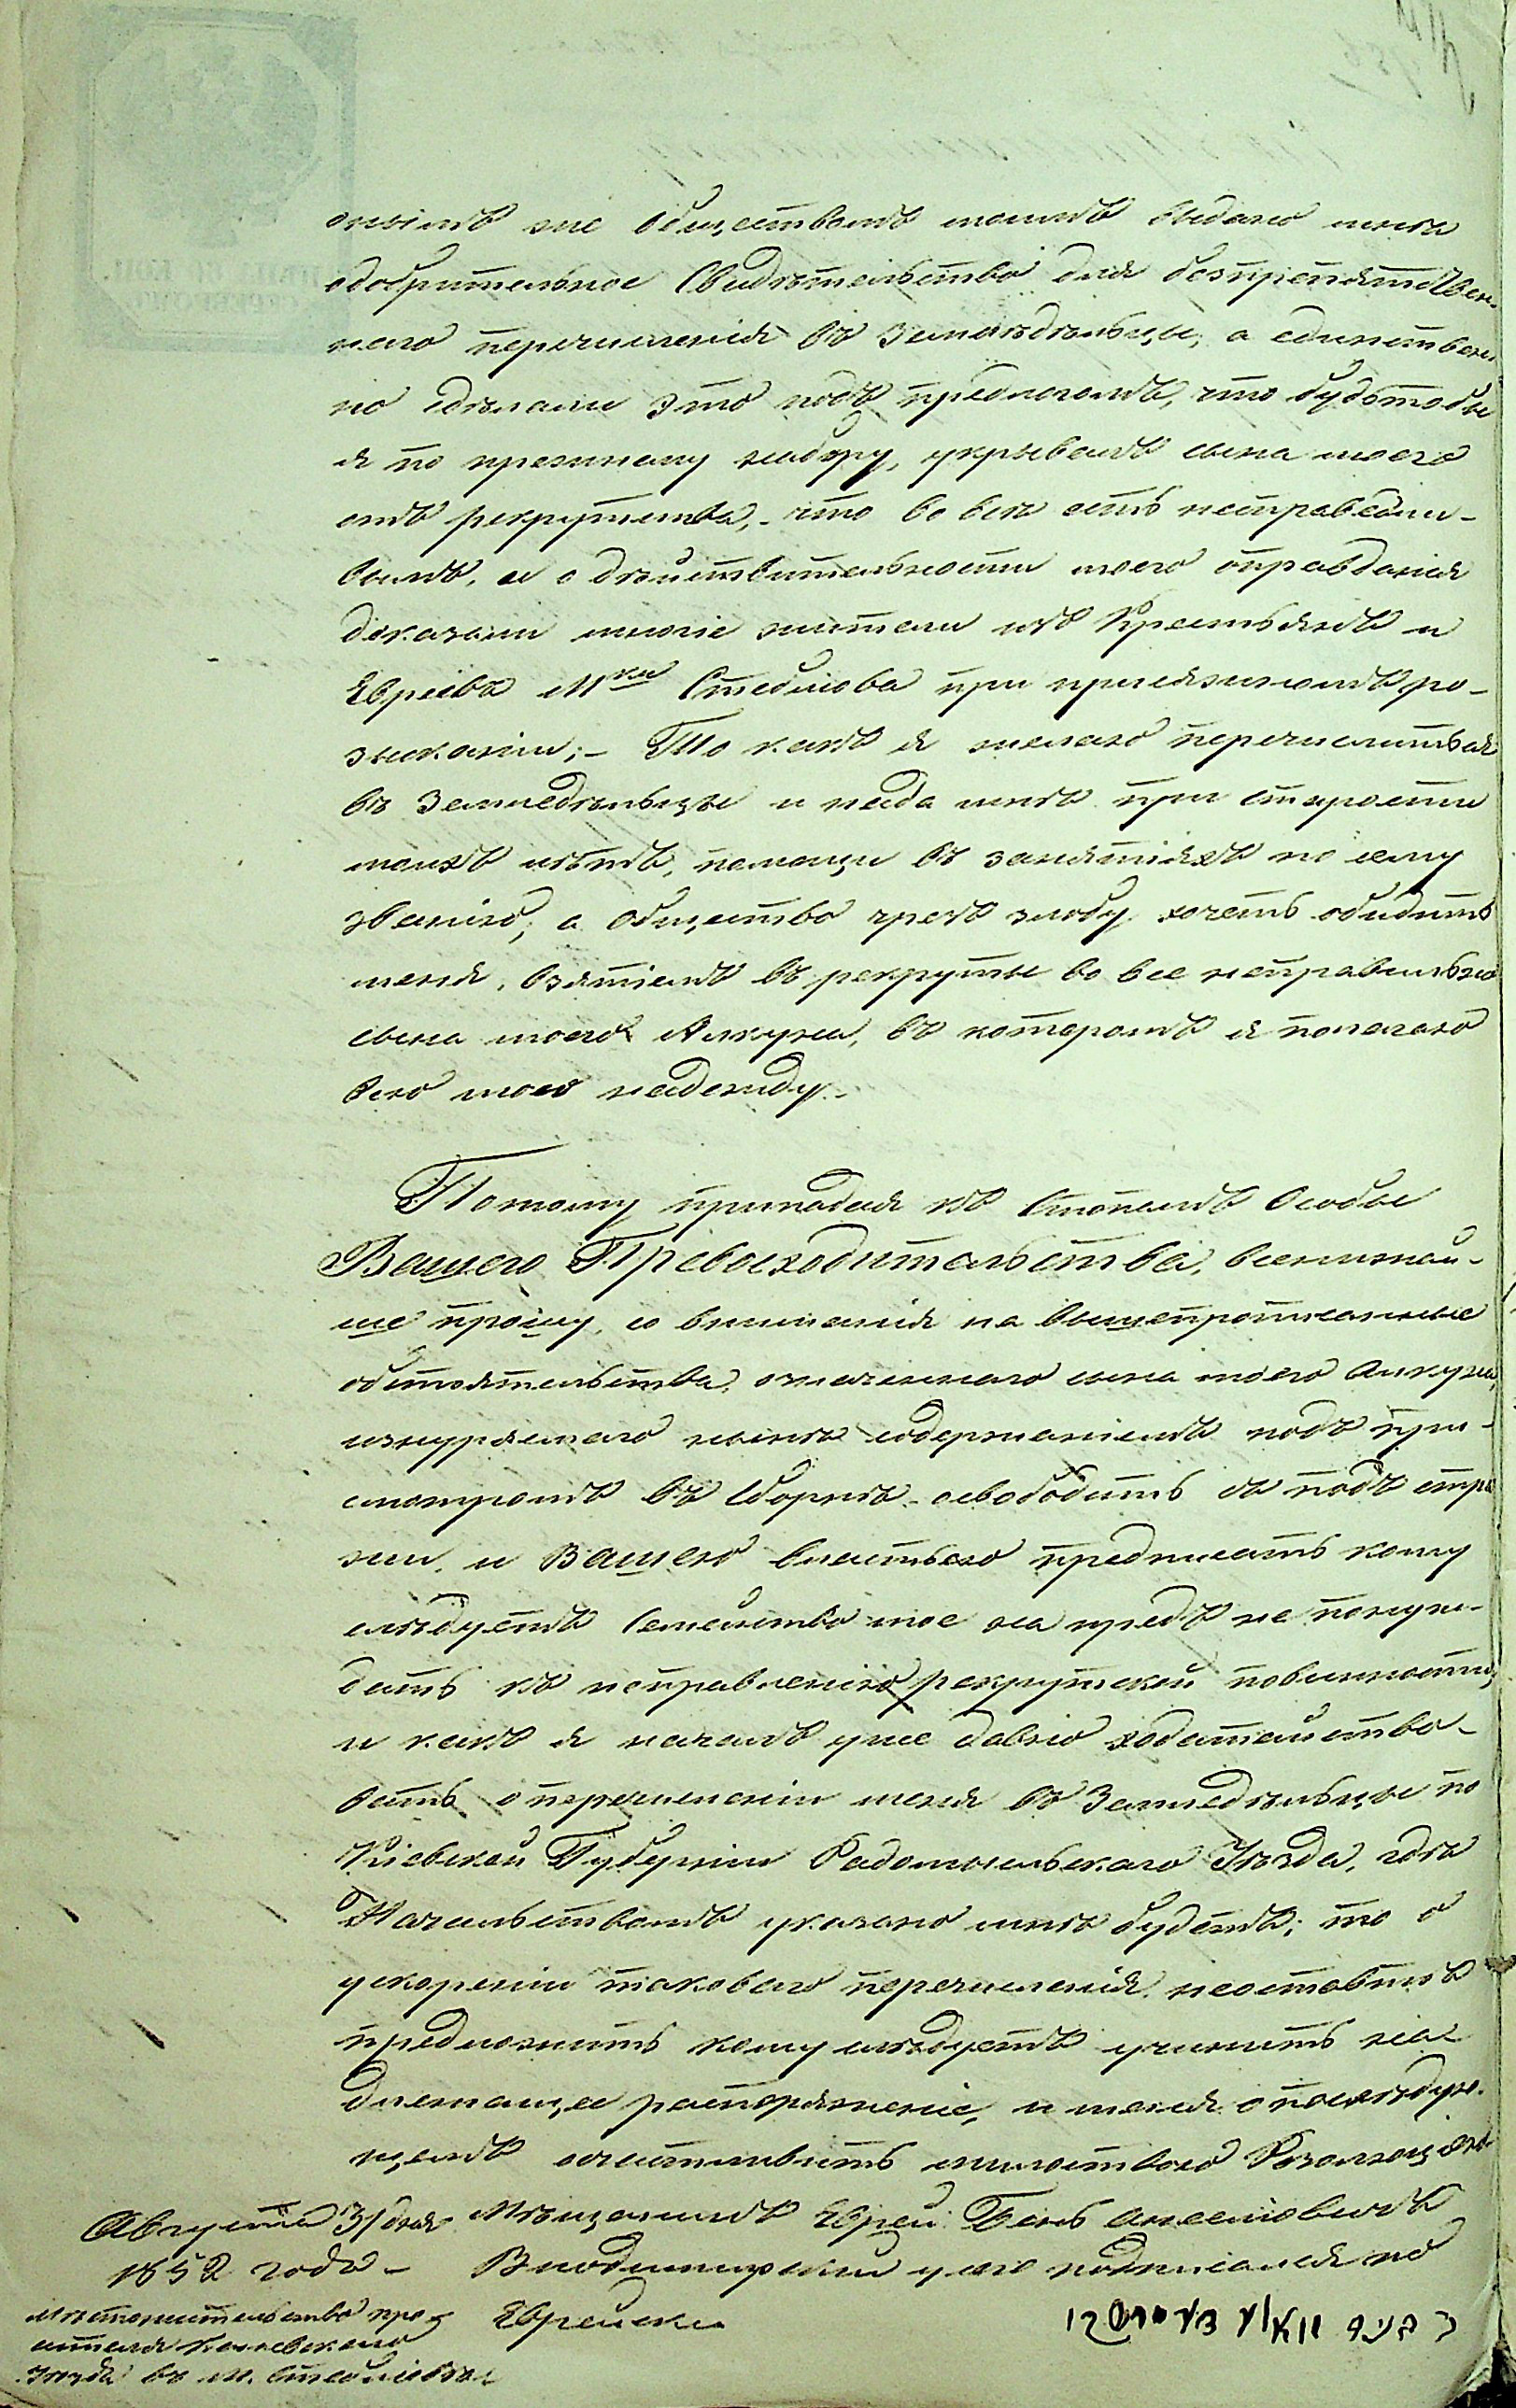 онымъ же Обществомъ моимъ выдано мнѣ
одобрительное Свидѣтельство для безпрепятствен-
наго перечисленія въ Земледѣльцы, а единствен-
но сдѣлали это подъ предлогомъ, что будтобы
я по прежнему набору, укрывалъ сына моего
отъ рекрутства, - что во все есть несправедли-
вымъ, и о дѣйствительности моего оправданія
доказали многіе жители изъ Крестьянъ и
Евреевъ М-ка Стеблова при присяжномъ ро-
зысканіи; - То какъ я желаю перечислиться
въ Земледѣльцы и надо мнѣ при старости
моихъ лѣтъ, помощи въ занятіяхъ по сему
званію, а Общество чрезъ злобу хочетъ обидить
меня, взятіемъ въ рекруты во все неправильно
сына моего Анкуна, въ которомъ я полагаю
всю мою надежду.
Потому припадая къ Стопамъ Особы
Вашего Превосходительства, всенижай-
ше прошу, со вниманія на вышепрописанные
обстоятельства, означеннаго сына моего Анкуна,
изнуряемаго нынѣ содержаніемъ подъ при-
смотромъ въ Сборнѣ - освободить съ подъ стра
жи, и Вашею властью предписать кому
слѣдуетъ Семейство мое на предъ не понуж-
дать къ исправленію рекрутской повинности,
и какъ я началъ уже давно ходатайство-
вать о перечисленіи меня въ Земледѣльцы по
Кіевской Губерніи Радомысльскаго Уѣзда, гдѣ
Начальствомъ указано мнѣ будетъ; то о
ускореніи таковаго перечисленія, неоставить
предложить кому слѣдуетъ учинить на
длежащее распоряженіе, и меня о послѣдую-
щемъ осчастливить милостивою Резолюціею.
Августа 31 дня Мѣщанинъ Еврей Бень
1852 года - Владимирскій у сего подписался по
Мѣстожительство про Еврейски
сителя Каневскаго
уѣзда въ м. Стебловѣ